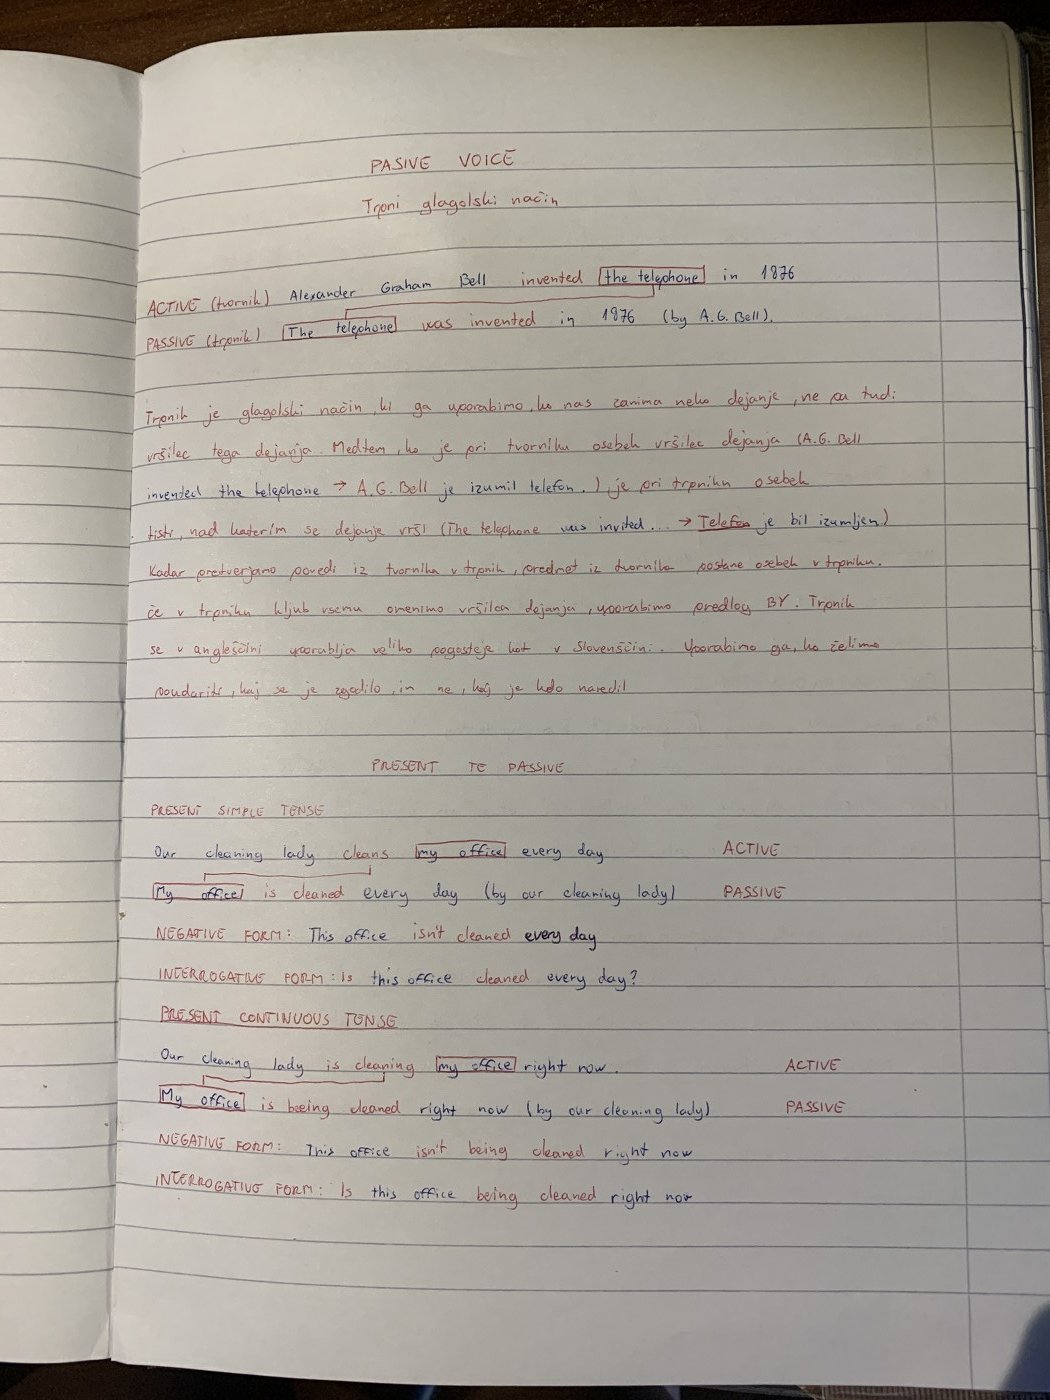 PASIVE VOICE
Trpni glagolski način
ACTIVE (tvornik) Alexander Graham Bell invented the telephone in 1876
PASSIVE (trpnik) The telephone was invented in 1876 (by A.G. Bell).
Trpnik je glagolski način, ki ga uporabimo, ko nas zanima neko dejanje, ne pa tudi
vršilec tega dejanja. Medtem, ko je pri tvorniku osebek vršilec dejanja (A.G. Bell
invented the telephone → A.G. Bell je izumil telefon.), je pri trpniku osebek
tisti, nad katerim se dejanje vrši (The telephone was invited... → Telefon je bil izumljen)
Kadar pretvarjamo povedi iz tvornika v trpnik, predmet iz tvornika postane osebek v trpniku.
če v trpniku kljub vsemu omenimo vršilca dejanja, uporabimo predlog BY. Trpnik
se v angleščini uporablja veliko pogosteje kot v slovenščini. Uporabimo ga, ko želimo
poudariti, kaj se je zgodilo, in ne, kaj je kdo naredil
PRESENT TE PASSIVE
PRESENT SIMPLE TENSE
Our cleaning lady cleans my office every day ACTIVE
My office is cleaned every day (by our cleaning lady) PASSIVE
NEGATIVE FORM: This office isn't cleaned every day
INTERROGATIVE FORM: Is this office cleaned every day?
PRESENT CONTINUOUS TENSE
Our cleaning lady is cleaning my office right now. ACTIVE
My office is beeing cleaned right now (by our cleaning lady) PASSIVE
NEGATIVE FORM: This office isn't being cleaned right now
INTERROGATIVE FORM: Is this office being cleaned right now